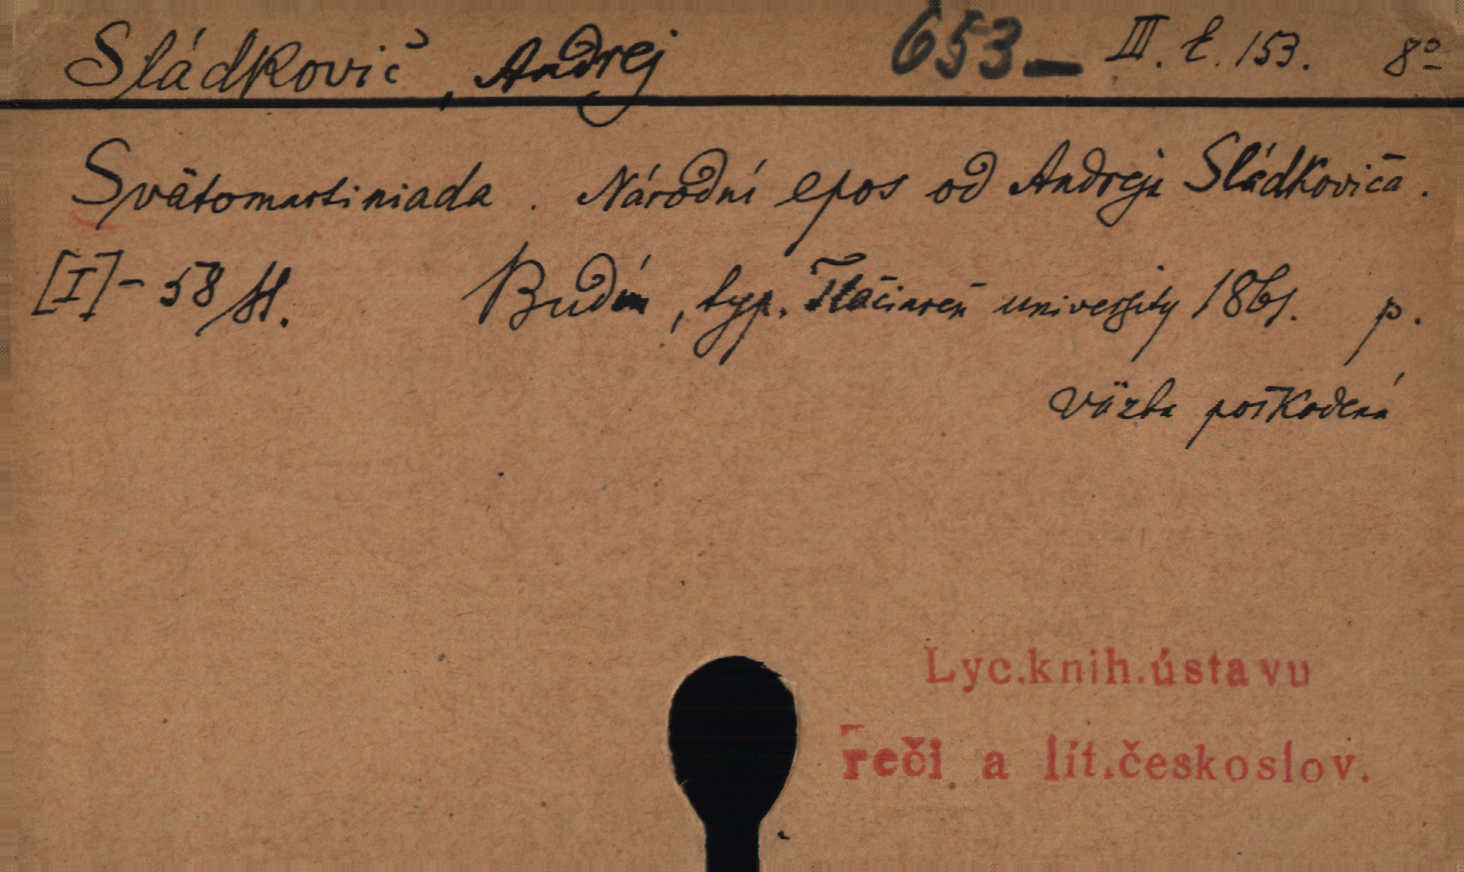 Sládkovič, Andrej 653 — III. ł. 153. 8°
Svätomartiniada. Národní epos od Andreja Sládkoviča.
[I] - 58 st. Budín, typ. Tlačiareň university 1861. p.
Väzba poškodená
Lyc.knih.ústavu
reči a lit.českoslov.